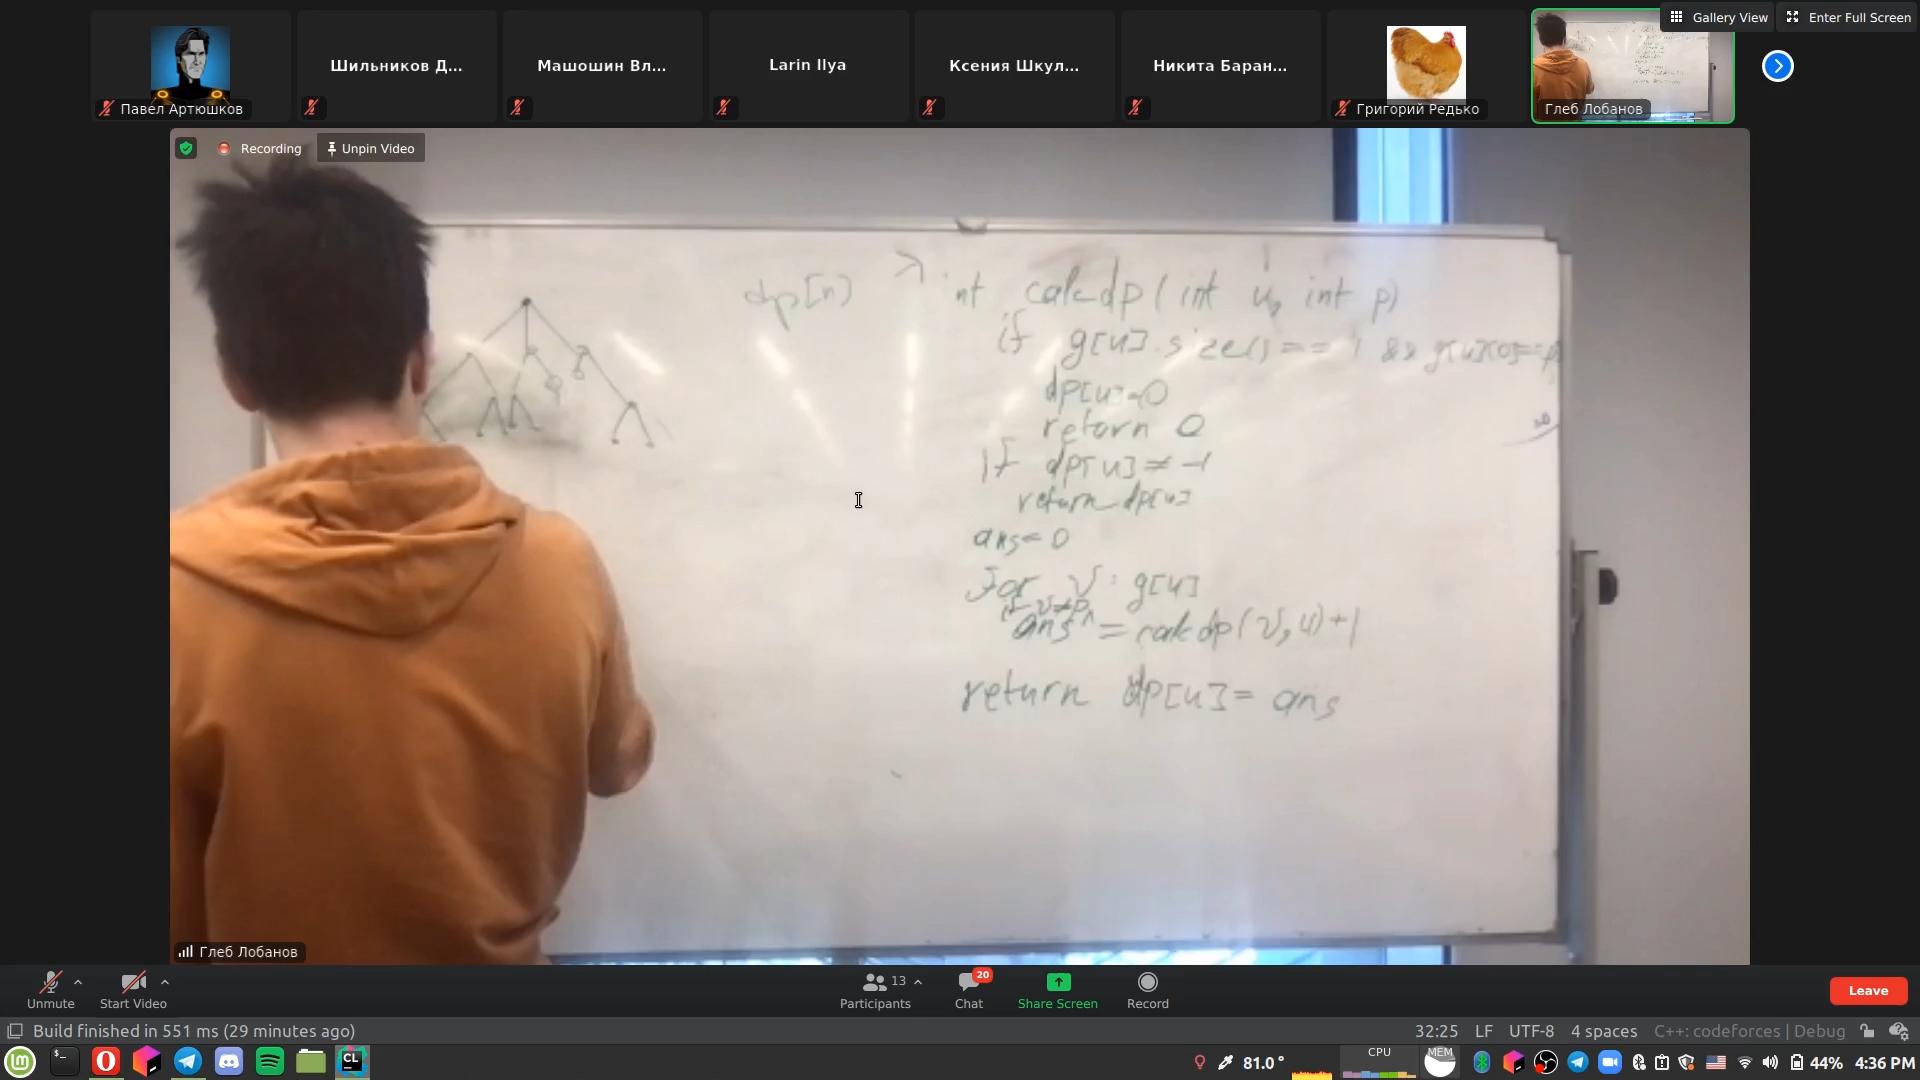 Gallery View
Enter Full Screen
Павел Артюшков
Шильников Д...
Машошин Вл...
Larin Ilya
Ксения Шкул...
Никита Баран...
Григорий Редько
Глеб Лобанов
Recording
Unpin Video
dp[n]
int calcdp(int u, int p)
if g[u].size() == 1 && g[u][0]==p
dp[u]=0
return 0
if dp[u] ≠ -1
return dp[u]
ans=0
for v : g[u]
if v≠p
ans ^= calcdp(v,u)+1
return dp[u]= ans
Глеб Лобанов
Unmute
Start Video
Participants
13
Chat
20
Share Screen
Record
Leave
Build finished in 551 ms (29 minutes ago)
32:25
LF
UTF-8
4 spaces
C++: codeforces | Debug
CL
81.0 °
CPU
MEM
44%
4:36 PM